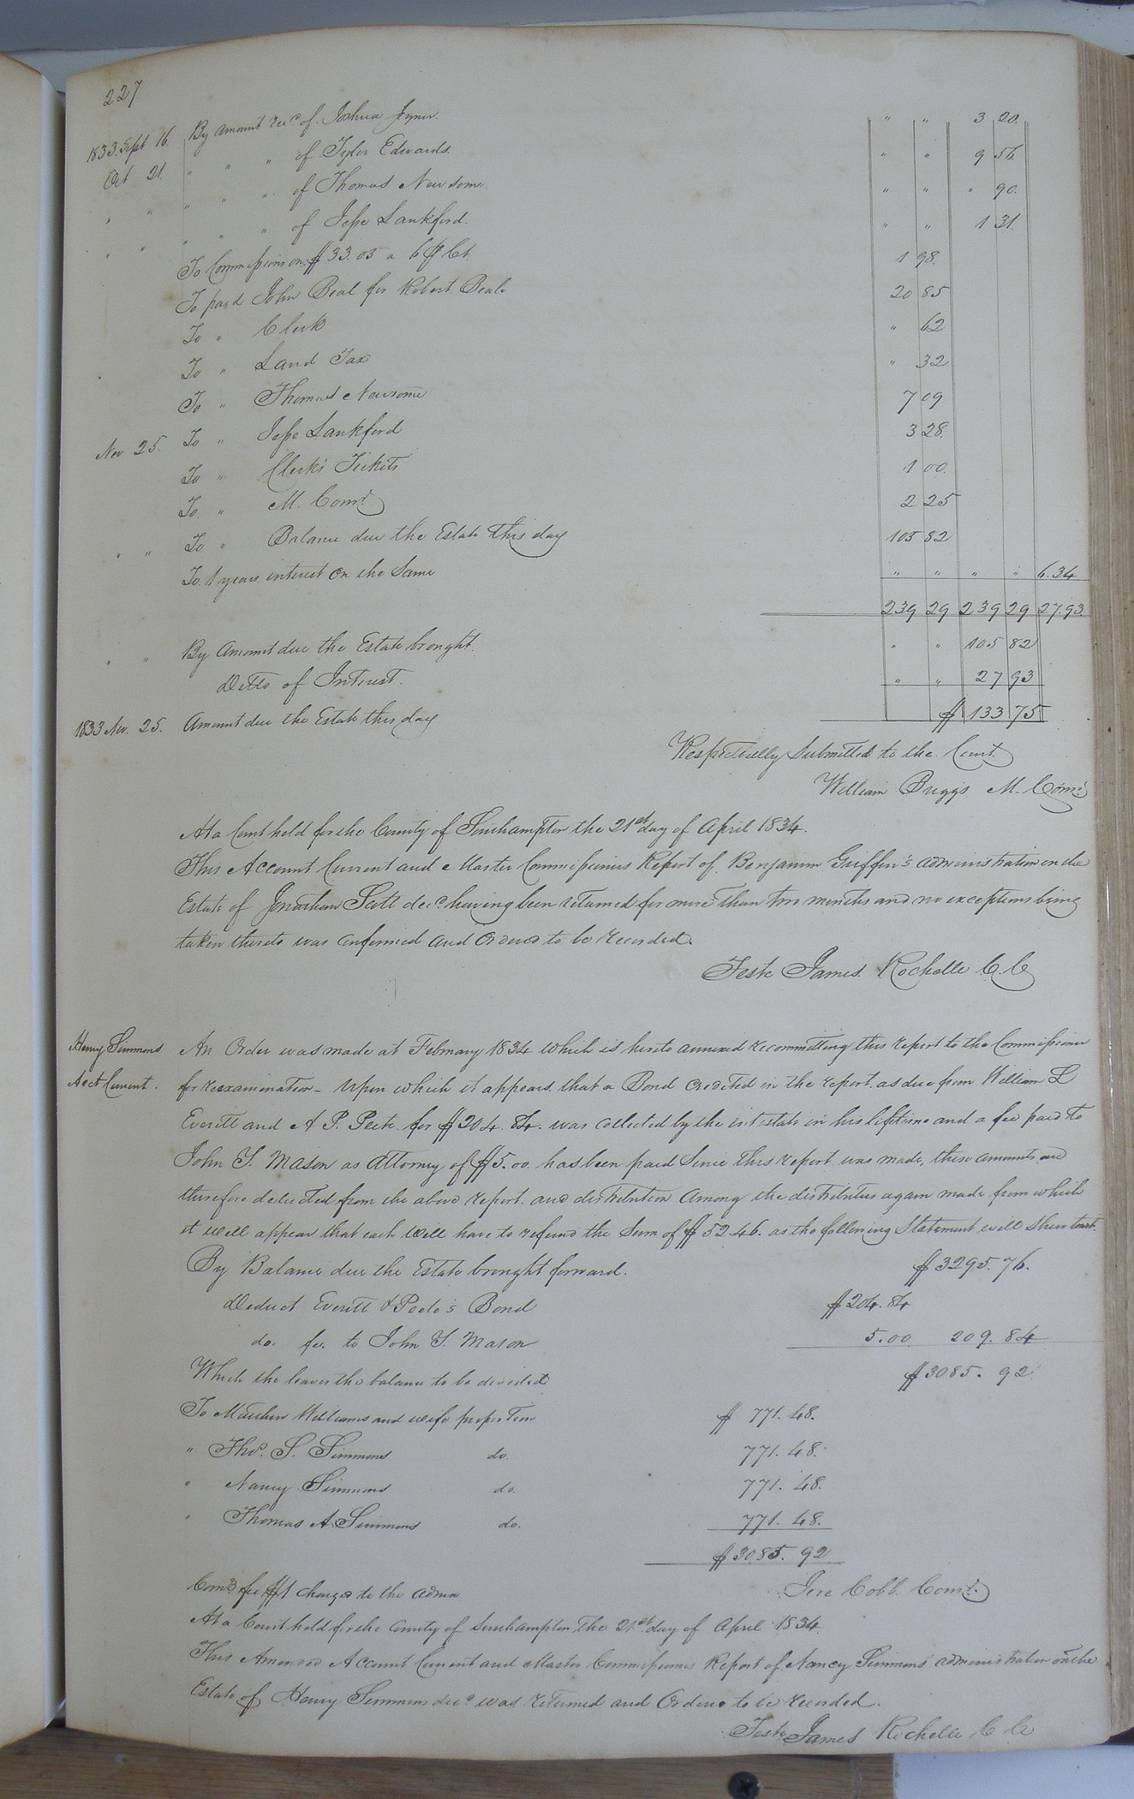 227
1833 Sept 16. By Amount rec.d of Joshua Joyner. " " 3 20
Oct 21. " " " of Tyler Edwards. " " 9 56
" " " " " of Thomas Newsome. " " " 90.
" " " " " of Jesse Lankford. " " 1 31.
To Commission on $33.03 a 6 P Ct. 1 98.
To paid John Beal for Robert Beale 20 85
To " Clerk " 62
To " Land Tax " 32
To " Thomas Newsome 7 09
Nov 25. To " Jesse Lankford 3 28.
To " Clerk's Tickets 1 00.
To " M. Comr. 2 25
" " To " Balance due the Estate this day 105 82
To 1 years interest on the Same " " " " 6.34
239 29 239 29 27.93
" " By Amount due the Estate brought. " " 105 82
Ditto of Interest. " " 27 93
1833 Nov. 25. Amount due the Estate this day $ 133 75
Respectfully Submitted to the Court
William Briggs M. Comr.
At a Court held for the County of Southampton the 21st day of April 1834.
This Account Current and Master Commissioners Report of Benjamin Griffin's administration on the
Estate of Jonathan Scott dec.d having been returned for more than two months and no exceptions being
taken thereto was confirmed and Ordered to be recorded.
Teste James Rochelle C. C
Henry Simmons An Order was made at February 1834 which is hereto annexed recommitting this report to the Commissioner
Acct Current. for reexamination - Upon which it appears that a Bond credited in the report as due from William L
Everitt and A P. Peete for $204.84. was collected by the intestate in his lifetime and a fee paid to
John Y. Mason as Attorney of $5.00 has been paid Since this report was made, these amounts are
therefore deducted from the above report and distribution Among the distributees again made from which
it will appear that each will have to refund the Sum of $52.46. as the following Statement will Shew to wit.
By Balance due the Estate brought forward. $3295.76.
Deduct Everitt & Peete's Bond $204.84
do. fee to John Y. Mason 5.00 209.84
Which the leaves the balance to be divided $3085.92
To Matthew Williams and wife proportion $ 771.48.
" Thos. S. Simmons do. 771.48.
" Nancy Simmons do. 771.48.
" Thomas A. Simmons do. 771.48.
$3085.92
Comrs fee $1 charged to the Admx Jere Cobb Comr.
At a Court held for the County of Southampton The 21st day of April 1834.
This Amended Account Current and Master Commissioners Report of Nancy Simmons administration on the
Estate of Henry Simmons dec.d was returned and Ordered to be recorded.
Teste James Rochelle C C